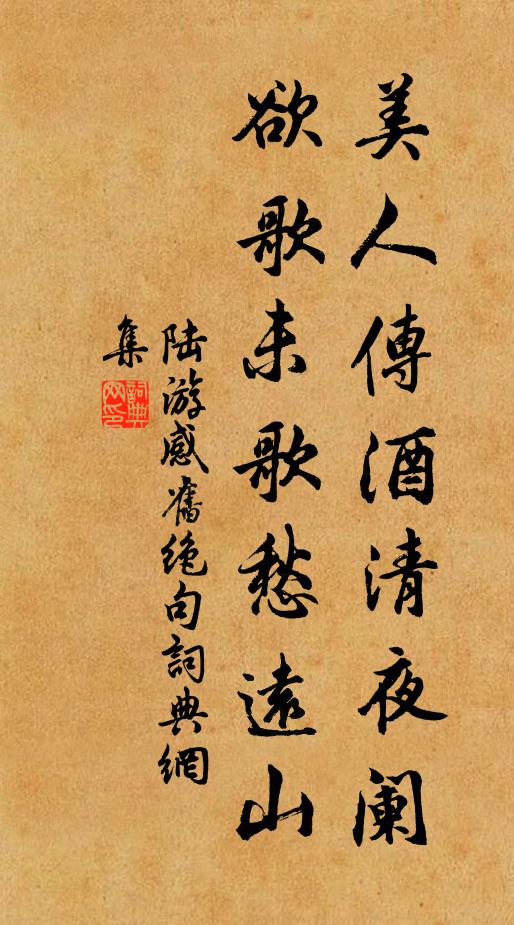 美人傳酒清夜阑
欲歌未歌愁遠山
陆游感舊绝句詞典網
集
詞典网印